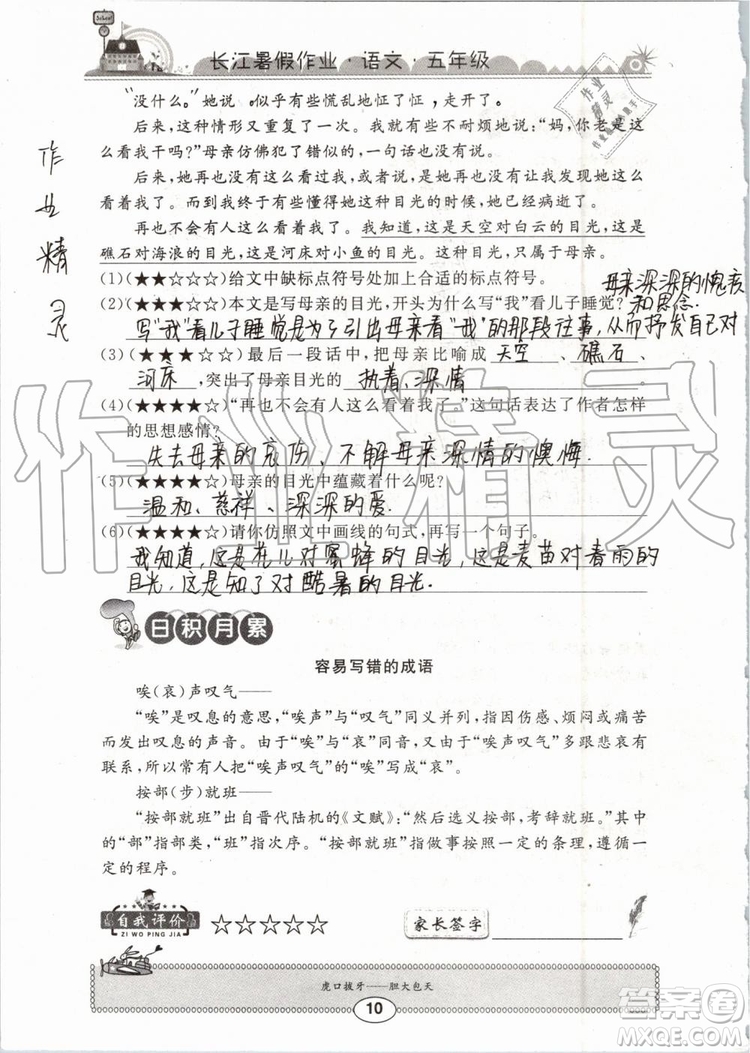 School
长江暑假作业·语文·五年级
“没什么。”她说□似乎有些慌乱地怔了怔,走开了。
后来,这种情形又重复了一次。我就有些不耐烦地说:“妈,你老是这
么看我干吗?”母亲仿佛犯了错似的,一句话也没说就走开了。
后来,她再也没有这么看过我,或者是她再也没有让我发现她这么
看着我了。而到我终于有些懂得她这种目光的时候,她已经病逝了。
再也不会有人这么看着我了□我知道,这是天空对白云的目光,这是
礁石对海浪的目光,这是河床对小鱼的目光。这种目光,只属于母亲。
(1)(★★☆☆☆)给文中缺标点符号处加上合适的标点符号。
母亲深深的愧疚
(2)(★★★☆☆)本文是写母亲的目光,开头为什么写“我”看儿子睡觉?
和思念
写“我”看儿子睡觉是为了引出母亲看“我”的那段往事,从而抒发自己对
(3)(★★★☆☆)最后一段话中,把母亲比喻成 天空 、 礁石 、
河床 ,突出了母亲目光的 执着、深情
(4)(★★★★☆)“再也不会有人这么看着我了□”这句话表达了作者怎样
的思想感情?
失去母亲的哀伤,不解母亲深情的懊悔.
(5)(★★★★☆)母亲的目光中蕴藏着什么呢?
温和、慈祥、深深的爱.
(6)(★★★★☆)请你仿照文中画线的句式,再写一个句子。
我知道,这是花儿对蜜蜂的目光,这是麦苗对春雨的
目光,这是知了对酷暑的目光.
作业精灵
作业精灵
日积月累
容易写错的成语
唉(哀)声叹气——
“唉”是叹息的意思,“唉声”与“叹气”同义并列,指因伤感、烦闷或痛苦
而发出叹息的声音。由于“唉”与“哀”同音,又由于“唉声叹气”多跟悲哀有
联系,所以常常有人把“唉声叹气”的“唉”写成“哀”。
按部(步)就班——
“按部就班”出自晋代陆机的《文赋》:“然后选义按部,考辞就班。”其中
的“部”指部类,“班”指次序。“按部就班”指做事按照一定的条理,遵循一
定的程序。
自我评价
ZI WO PING JIA
☆☆☆☆☆
家长签字
虎口拔牙——胆大包天
10
答案圈
MXQE.COM